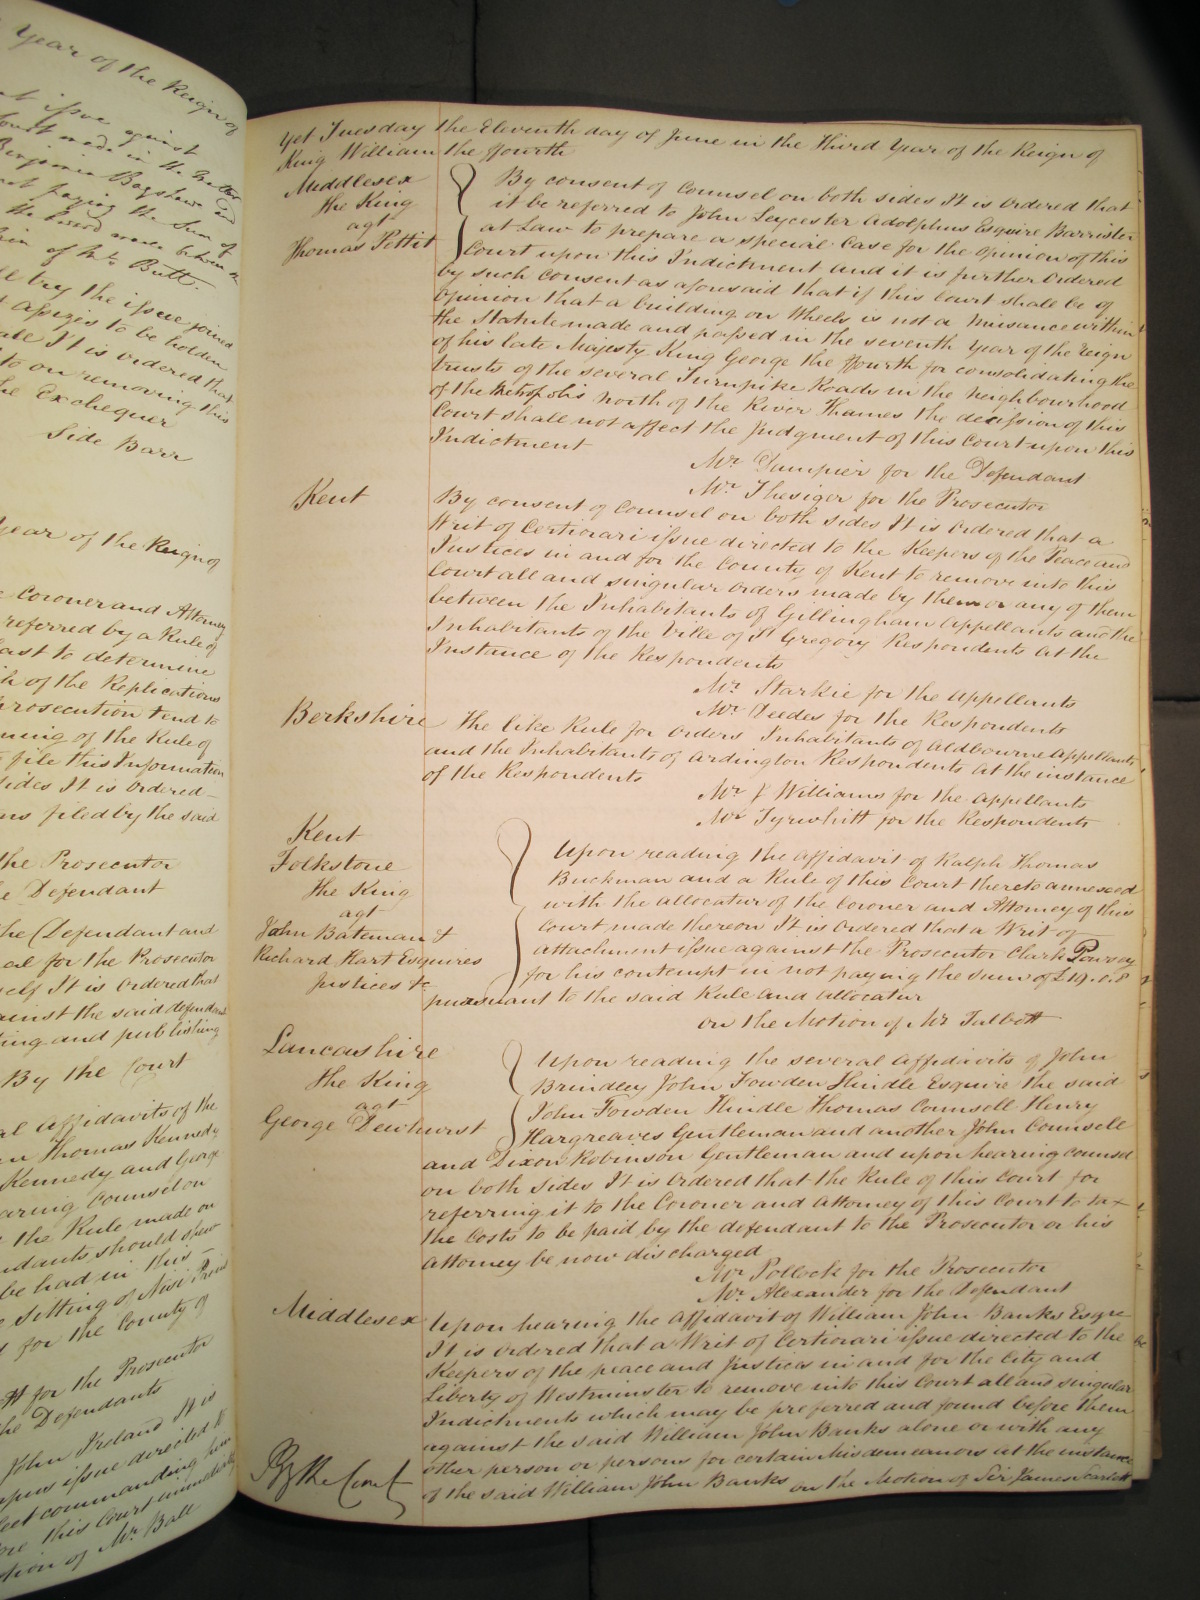 Year of the Reign of
issue against
Court made in the matter
Benjamin Bagshaw and
not paying the Sum of
of Mr. Butt.
try the issue joined
assizes to be holden
It is ordered that
to on removing this
the Exchequer
Side Barr
Year of the Reign of
Coroner and Attorney
referred by a Rule of
last to determine
of the Replications
Prosecution tend to
of the Rule of
file this Information
sides It is Ordered
filed by the said
the Prosecutor
Defendant
the Defendant and
for the Prosecutor
It is Ordered that
against the said defendant
and publishing
By the Court
Affidavits of the
Thomas Kennedy
Kennedy and George
hearing Counsel on
the Rule made on
should shew
be had in this
Sitting of Nisi Prius
for the County of
for the Prosecutor
the Defendants
John Ireland It is
issue directed to
commanding him
this Court immediately
of Mr. Ball
Yet Tuesday the Eleventh day of June in the Third Year of the Reign of
King William the ffourth
Middlesex
The King
agt
Thomas Pettit
By consent of Counsel on both sides It is ordered that
it be referred to John Leycester Adolphus Esquire Barrister
at Law to prepare a special Case for the opinion of this
Court upon this Indictment and it is further Ordered
by such Consent as aforesaid that if this Court shall be of
opinion that a building on Wheels is not a Nuisance within
the Statute made and passed in the seventh Year of the reign
of his late Majesty King George the ffourth for consolidating the
trusts of the several Turnpike Roads in the Neighbourhood
of the Metropolis north of the River Thames the decission of this
Court shall not affect the Judgment of this Court upon this
Indictment
Mr. Dumpier for the Defendant
Mr. Thesiger for the Prosecutor
Kent
By consent of Counsel on both sides It is Ordered that a
Writ of Certiorari issue directed to the Keepers of the Peace and
Justices in and for the County of Kent to remove into this
Court all and singular Orders made by them or any of them
between the Inhabitants of Gillingham Appellants and the
Inhabitants of the Ville of St Gregory Respondents at the
Instance of the Respondents
Mr. Starkie for the Appellants
Mr. Deedes for the Respondents
Berkshire
The like Rule for Orders Inhabitants of Aldbourne Appellants
and the Inhabitants of Ardington Respondents at the instance
of the Respondents
Mr J Williams for the Appellants
Mr Tyrwhitt for the Respondents
Kent
Folkstone
The King
agt
John Bateman &
Richard Hart Esquires
Justices &c
Upon reading the Affidavit of Ralph Thomas
Buckman and a Rule of this Court thereto annexed
with the allocatur of the Coroner and Attorney of this
Court made thereon It is Ordered that a Writ of
attachment issue against the Prosecutor Clark
for his contempt in not paying the sum of £19.0.8
pursuant to the said Rule and allocatur
On the Motion of Mr Talbott
Lancashire
The King
agt
George Dewhurst
Upon reading the several Affidavits of John
Brindley John Fowden Hindle Esquire the said
John Fowden Hindle Thomas Counsell Henry
Hargreaves Gentleman and another John Counsell
and Dixon Robinson Gentleman and upon hearing counsel
on both Sides It is Ordered that the Rule of this Court for
referring it to the Coroner and Attorney of this Court to tax
the Costs to be paid by the defendant to the Prosecutor or his
Attorney be now discharged
Mr. Pollock for the Prosecutor
Mr. Alexander for the Defendant
Middlesex
Upon hearing the Affidavit of William John Banks Esqre
It is ordered that a Writ of Certiorari issue directed to the
Keepers of the peace and Justices in and for the City and
Liberty of Westminster to remove into this Court all and singular
Indictments which may be preferred and found before them
against the said William John Banks alone or with any
other person or persons for certain Misdemeanors at the instance
of the said William John Banks on the Motion of Sir James Scarlett
By the Court